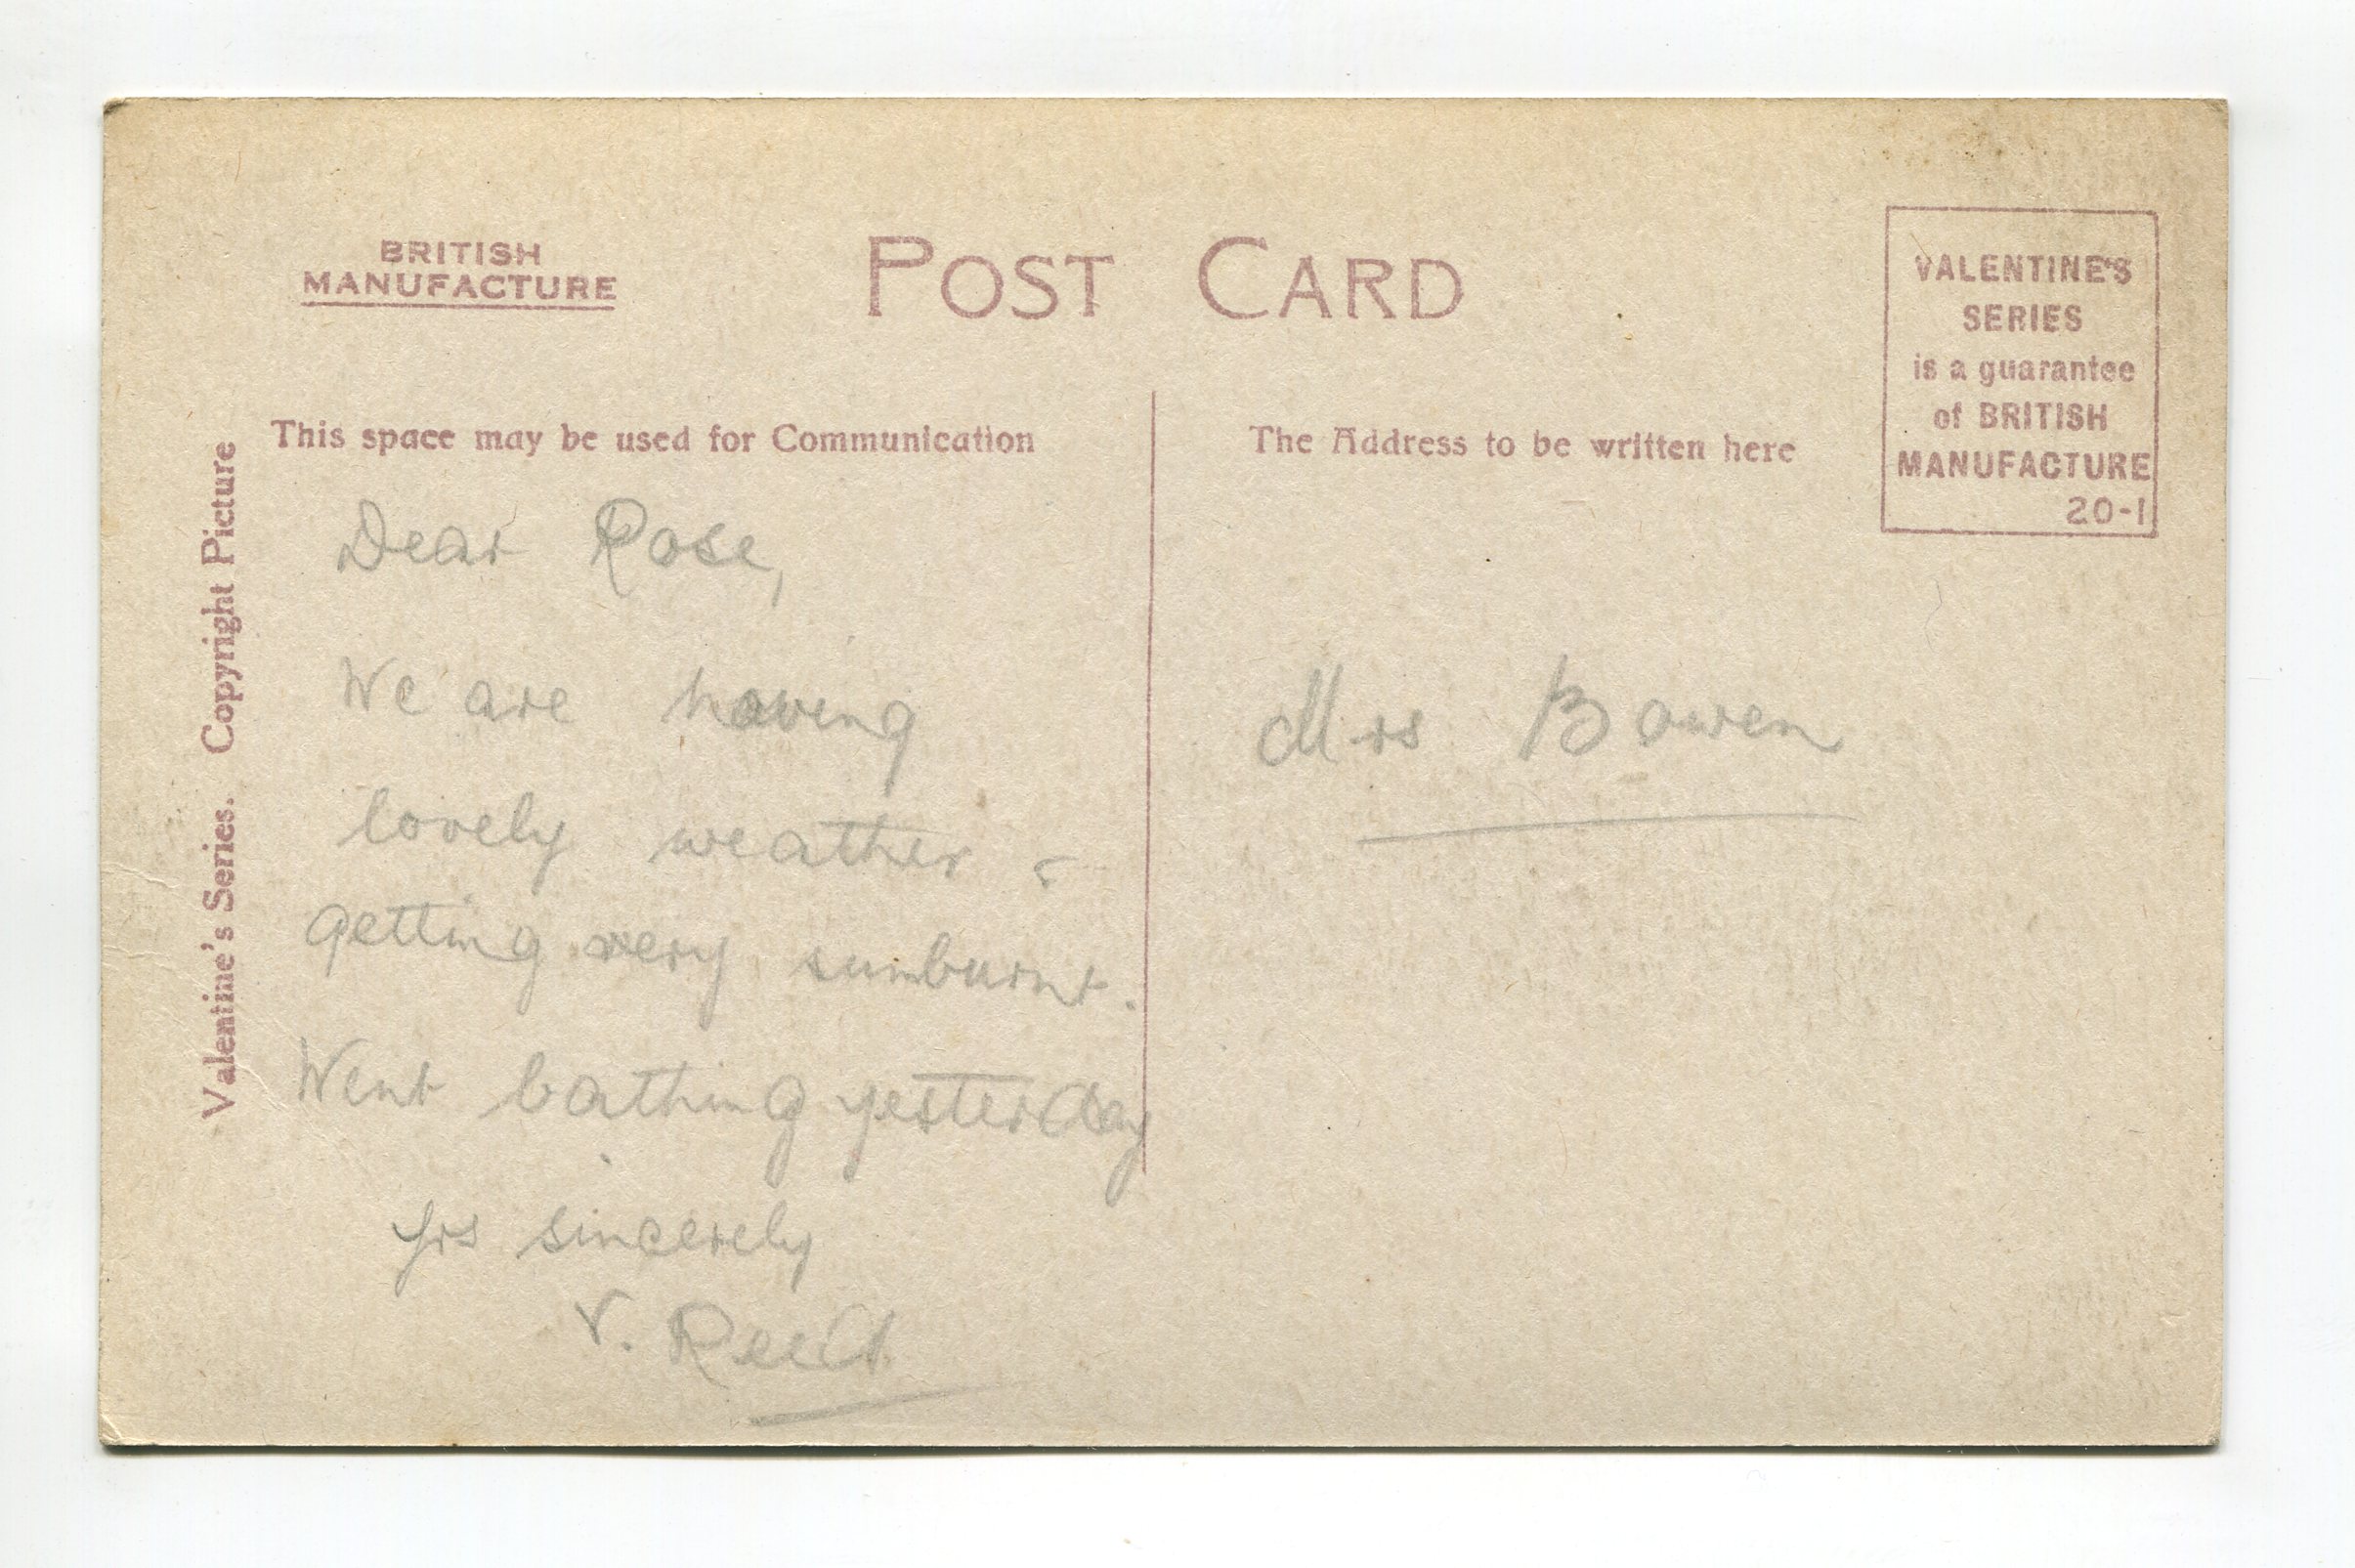 BRITISH
MANUFACTURE
POST CARD
VALENTINE'S
SERIES
is a guarantee
of BRITISH
MANUFACTURE
20-1
Valentine's Series. Copyright Picture
This space may be used for Communication
Dear Rose,
We are having
lovely weather &
getting very sunburnt.
Went bathing yesterday
yrs sincerely
V. Reed
The Address to be written here
Mrs Bowen